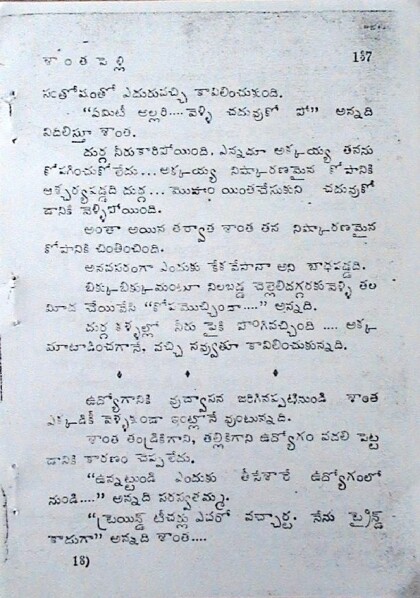 శాంత పెళ్లి 137
సంతోషంతో ఎదురువచ్చి కావిలించుకుంది.
“ఏమిటీ అల్లరి....వెళ్ళి చదువుకో పో” అన్నది
విదిలిస్తూ శాంత.
దుర్గ నీరుకారిపోయింది. ఎన్నడూ అక్కయ్య తనను
కోపగించుకోలేదు... అక్కయ్య నిష్కారణమైన కోపానికి
ఆశ్చర్యపడ్డది దుర్గ... మొహం యింతచేసుకుని చదువుకో
డానికి వెళ్ళిపోయింది.
అంతా అయిన తర్వాత శాంత తన నిష్కారణమైన
కోపానికి చింతించింది.
అనవసరంగా ఎందుకు కేకవేసానా అని బాధపడ్డది.
బిక్కుబిక్కుమంటూ నిలబడ్డ చెల్లెలిదగ్గరకువెళ్ళి తల
మీద చేయివేసి “కోపమొచ్చిందా....” అన్నది.
దుర్గ కళ్ళల్లో నీరు పైకి పొంగివచ్చింది .... అక్క
మాటాడించగానే, వచ్చి నవ్వుతూ కావిలించుకున్నది.
ఉద్యోగానికి వుద్వాసన జరిగినప్పటినుండి శాంత
ఎక్కడికీ వెళ్ళకుండా ఇంట్లోనే వుంటున్నది.
శాంత తండ్రికిగాని, తల్లికిగాని ఉద్యోగం వదలి పెట్ట
డానికి కారణం చెప్పలేదు.
“ఉన్నట్టుండి ఎందుకు తీసేశారే ఉద్యోగంలో
నుండి....” అన్నది సరస్వతమ్మ.
“ట్రెయిన్డ్ టీచర్లు ఎవరో వచ్చార్ట. నేను ట్రైన్డ్
కాదుగా” అన్నది శాంత....
18)